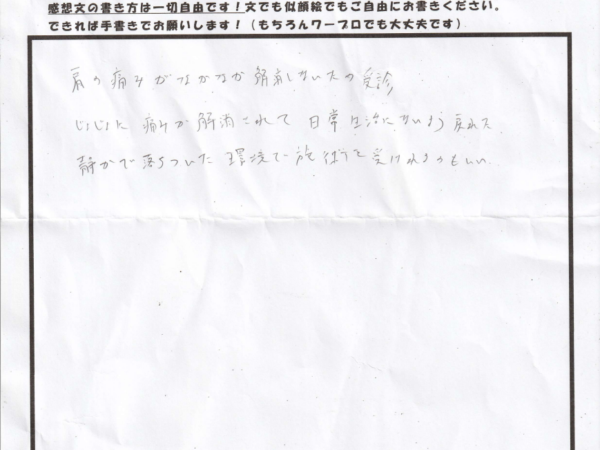 感想文の書き方は一切自由です！文でも似顔絵でもご自由にお書きください。
できれば手書きでお願いします！（もちろんワープロでも大丈夫です）
肩の痛みがなかなか解消しないため受診
じょじょに痛みが解消されて日常生活にかいよう戻れた
静かで落ちついた環境で施術を受けれるのもいい